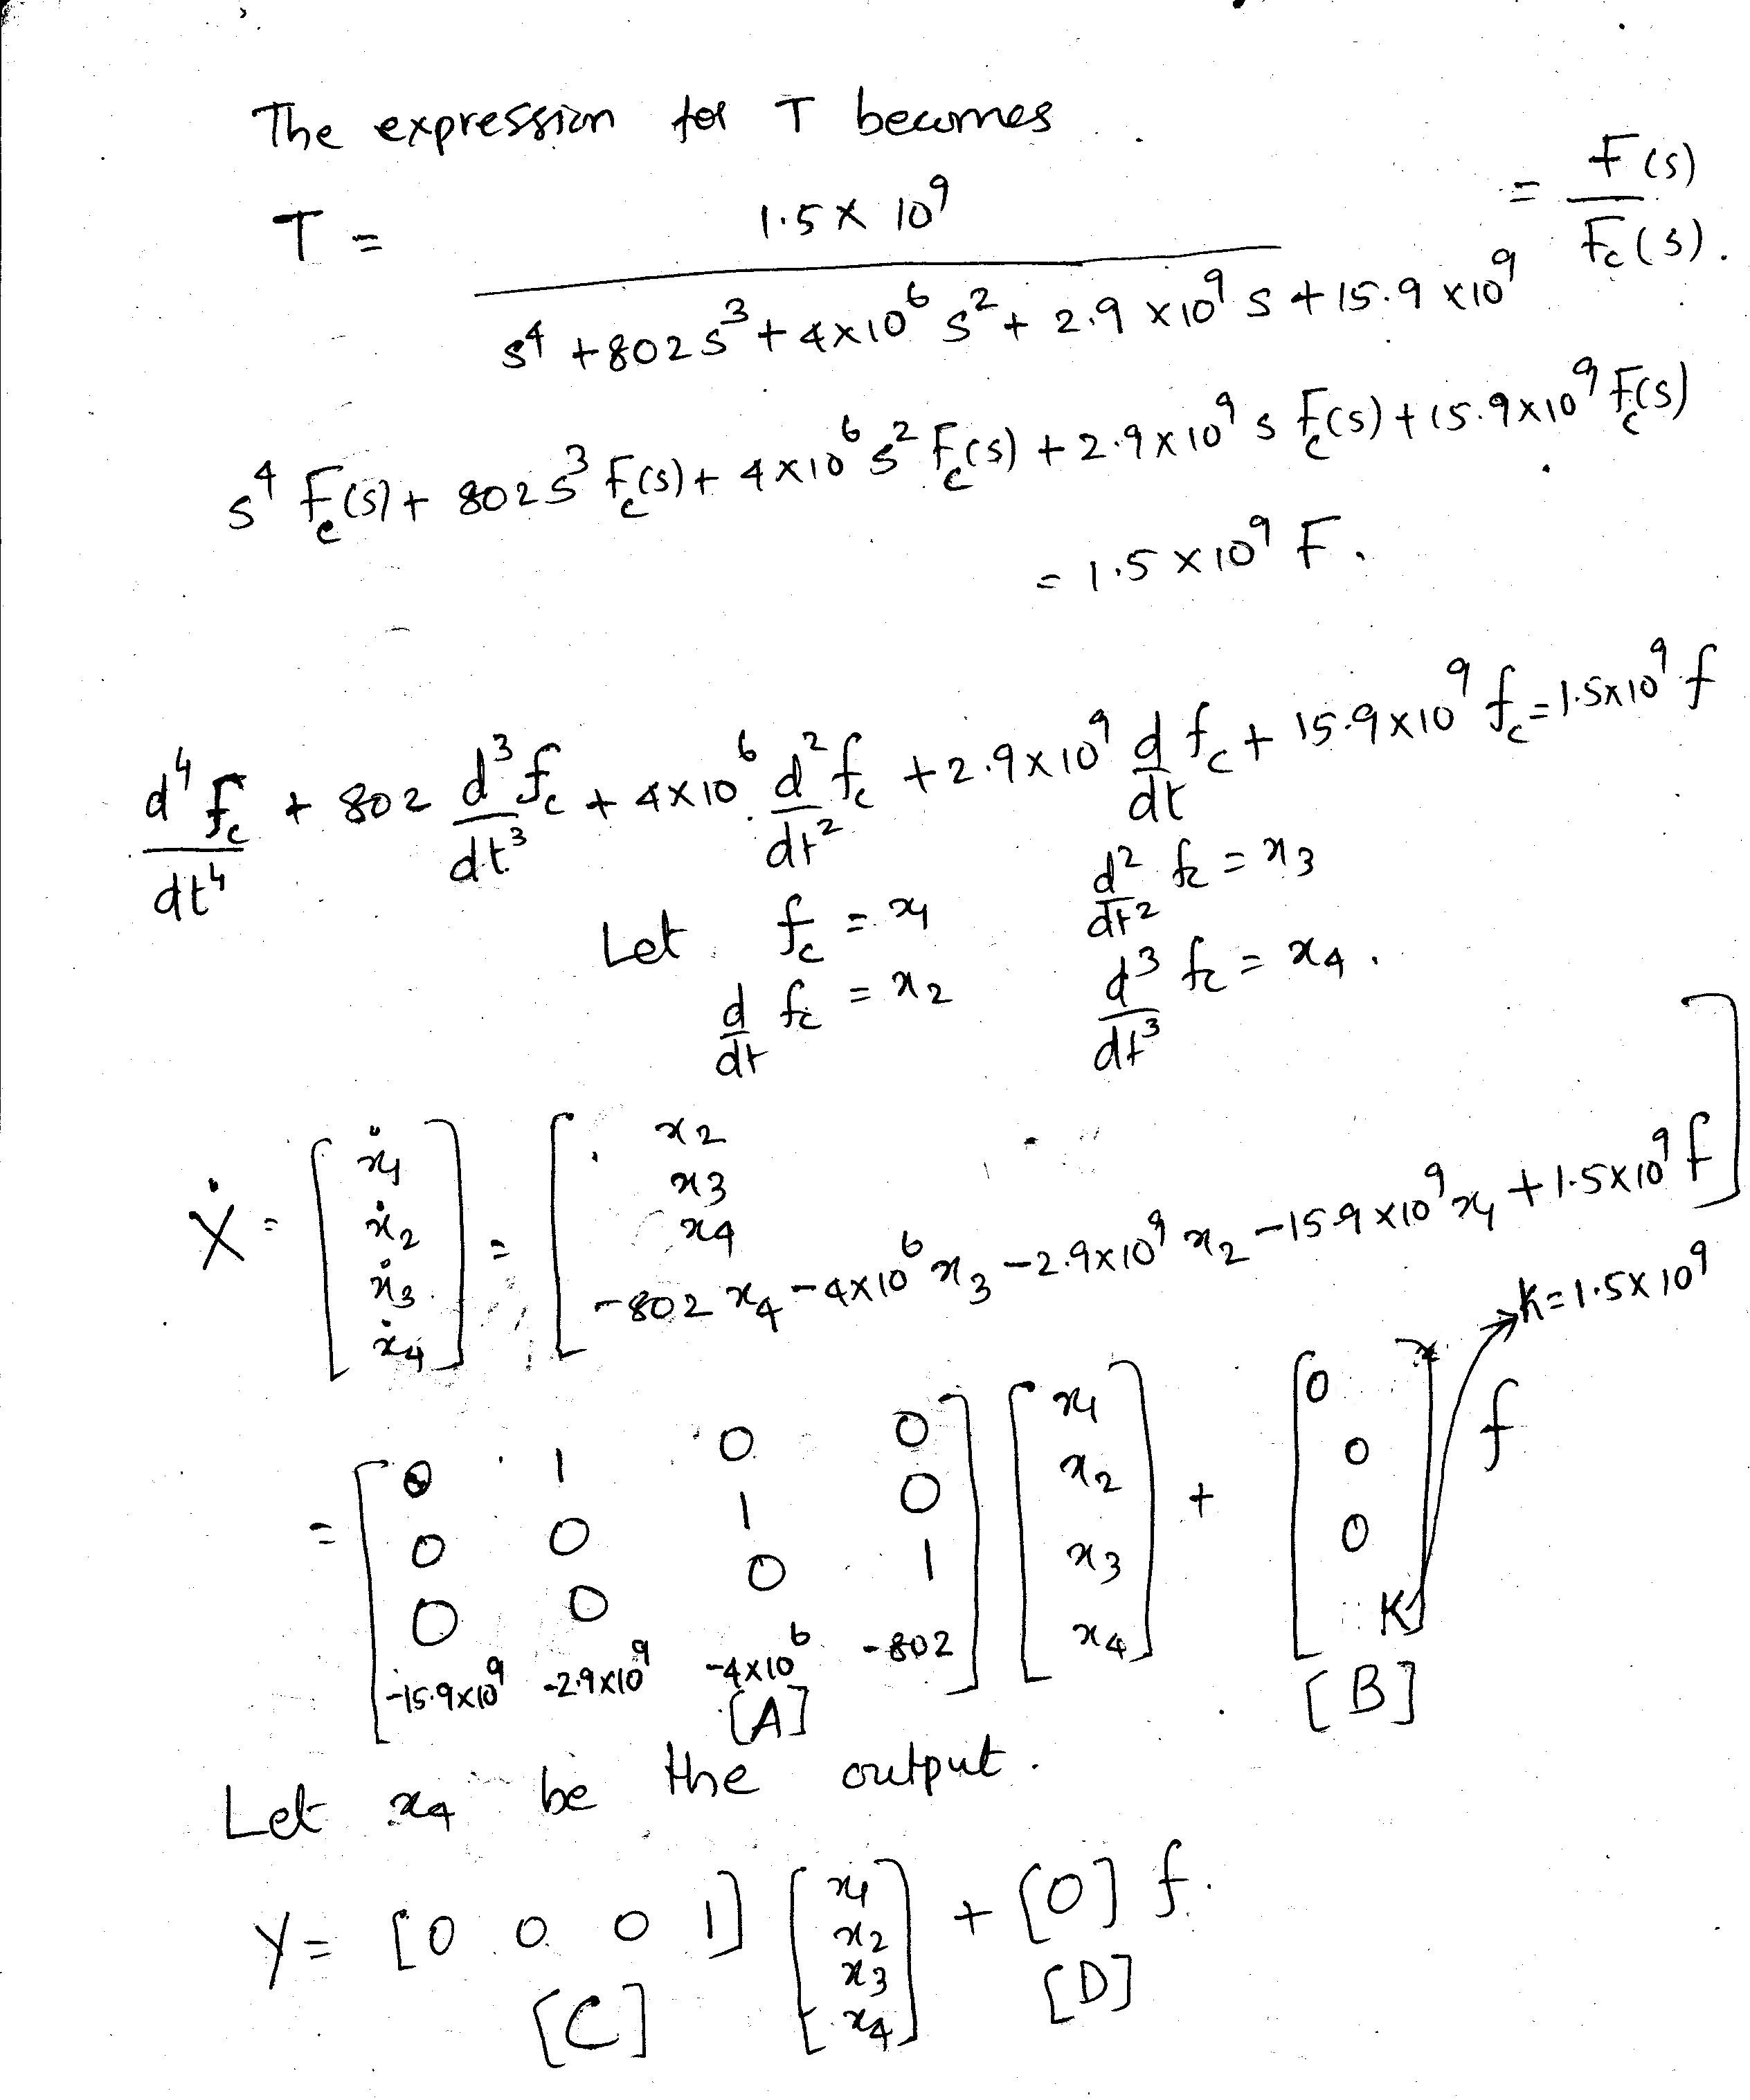 The expression for T becomes
T = 1.5 × 10⁹ / (s⁴ + 802s³ + 4×10⁶ s² + 2.9 ×10⁹ s + 15.9 ×10⁹) = F(s) / Fc(s).
s⁴ Fc(s) + 802s³ Fc(s) + 4×10⁶ s² Fc(s) + 2.9×10⁹ s Fc(s) + 15.9×10⁹ Fc(s)
= 1.5 ×10⁹ F.
d⁴fc/dt⁴ + 802 d³fc/dt³ + 4×10⁶ d²fc/dt² + 2.9×10⁹ d/dt fc + 15.9×10⁹ fc = 1.5×10⁹ f
Let fc = x1 d²/dt² fc = x3
d/dt fc = x2 d³/dt³ fc = x4.
Ẋ = [ẋ1 ẋ2 ẋ3 ẋ4] = [x2
x3
x4
-802 x4 - 4×10⁶ x3 - 2.9×10⁹ x2 - 15.9×10⁹ x1 + 1.5×10⁹ f]
K = 1.5×10⁹
= [0 1 0 0 [x1 [0
0 0 1 0 x2 + 0 f
0 0 0 1 x3 0
-15.9×10⁹ -2.9×10⁹ -4×10⁶ -802] x4] K]
[A] [B]
Let x4 be the output.
Y = [0 0 0 1] [x1 x2 x3 x4] + [0] f.
[C] [D]